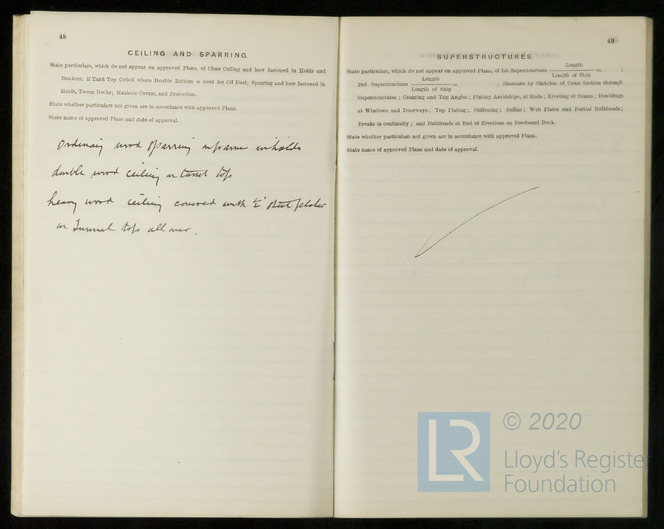 48
CEILING AND SPARRING.
State particulars, which do not appear on approved Plans, of Close Ceiling and how fastened in Holds and
Bunkers; if Tank Top Ceiled where Double Bottom is used for Oil Fuel; Sparring and how fastened in
Holds, Tween Decks; Manhole Covers, and Protection.
State whether particulars not given are in accordance with approved Plans.
State name of approved Plans and date of approval.
Ordinary wood sparring in frame in holds
double wood ceiling on tank tops
heavy wood ceiling covered with ½" steel plates
on Tunnel tops all over.
49
SUPERSTRUCTURES.
State particulars, which do not appear on approved Plans, of 1st Superstructure Length / Length of Ship = ;
2nd Superstructure Length / Length of Ship = ; illustrate by Sketches of Cross Section through
Superstructures; Coaming and Top Angles; Plating Amidships, at Ends; Riveting of Seams; Doublings
at Windows and Doorways; Top Plating; Stiffening; Beams; Web Plates and Partial Bulkheads;
Breaks in continuity; and Bulkheads at End of Erections on Freeboard Deck.
State whether particulars not given are in accordance with approved Plans.
State name of approved Plans and date of approval.
LR
© 2020
Lloyd's Register
Foundation